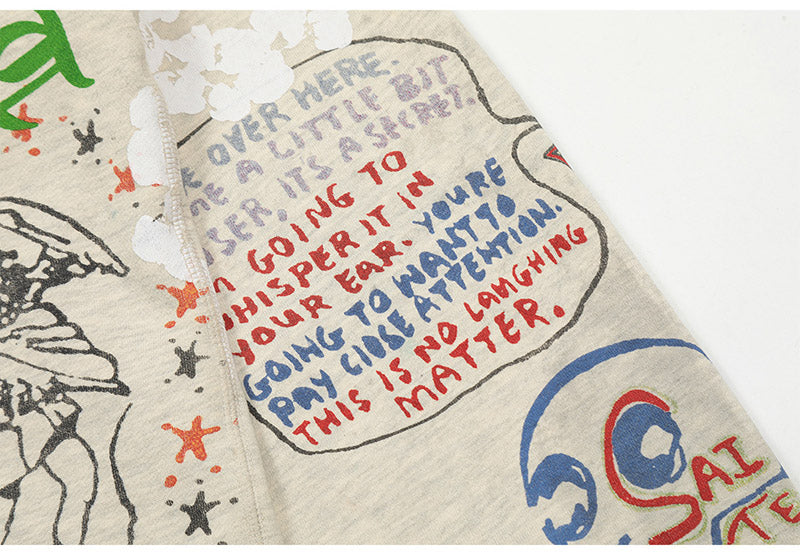 E OVER HERE.
ME A LITTLE BIT
SER, ITS A SECRET.
GOING TO
WHISPER IT IN
YOUR EAR. YOURE
GOING TO WANT TO
PAY CLOSE ATTENTION.
THIS IS NO LAUGHING
MATTER.
SAI
TE